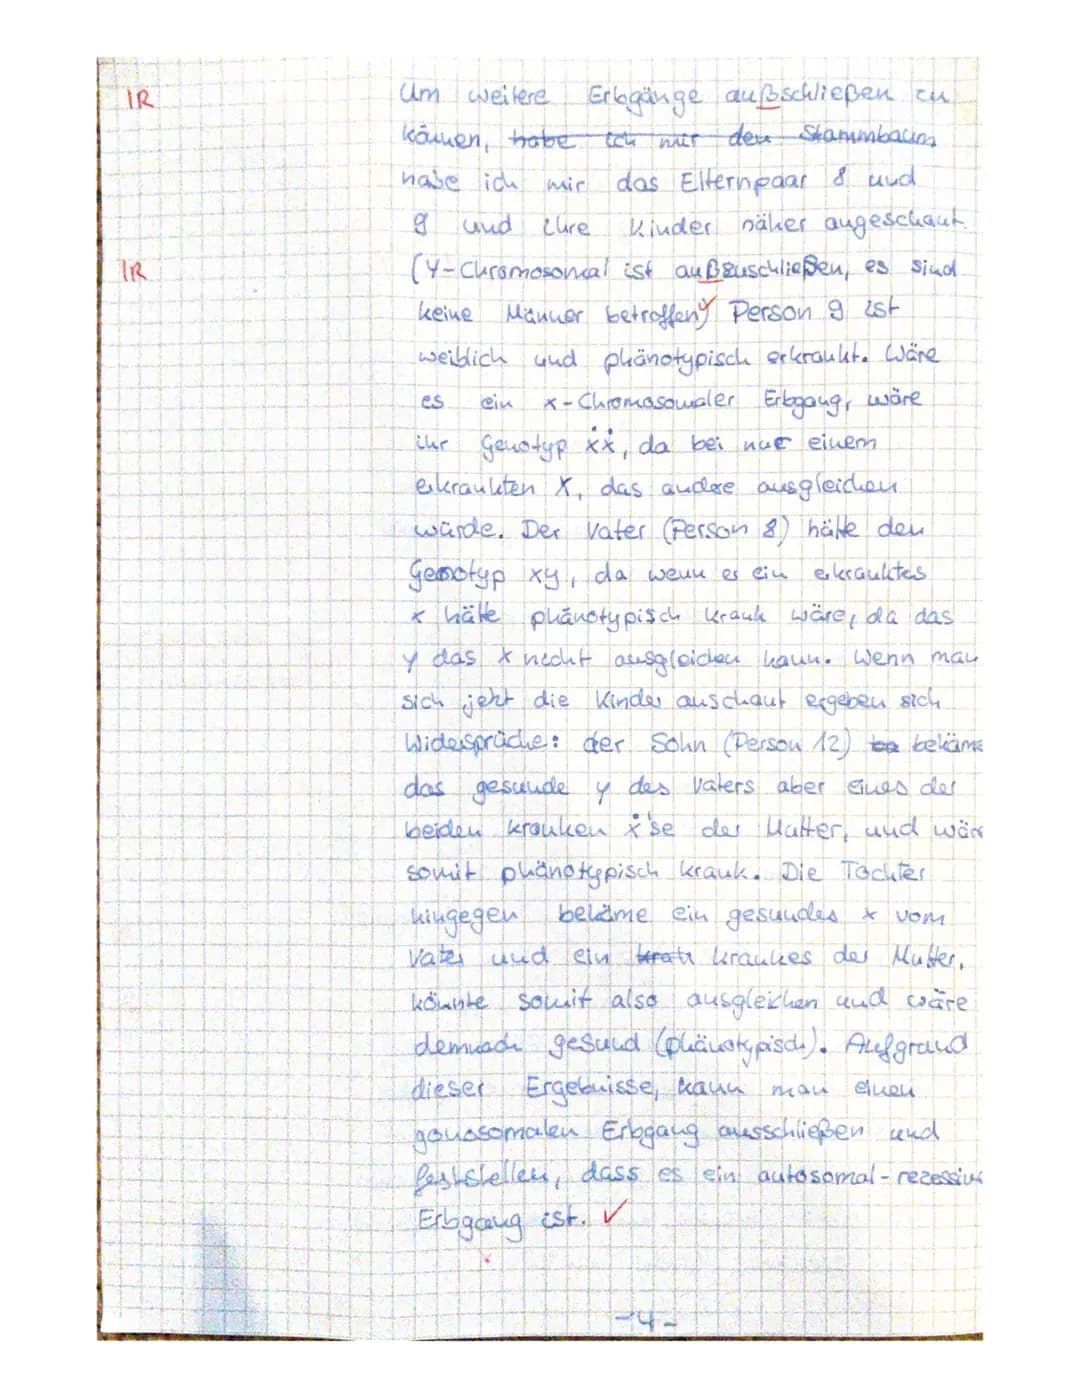 1R
Um weitere Erbgänge außschließen zu
können, habe ich mir den Stammbaum
habe ich mir das Elternpaar 8 und
9 und ihre Kinder näher angeschaut.
1R
(Y-Chromosomal ist außzuschließen, es sind
keine Männer betroffen) Person 9 ist
weiblich und phänotypisch erkrankt. Wäre
es ein x-Chromosomaler Erbgang, wäre
ihr Genotyp ẋẋ, da bei nur einem
erkrankten X, das andere ausgleichen
würde. Der Vater (Person 8) hätte den
Genotyp xy, da wenn er ein erkranktes
x hätte phänotypisch krank wäre, da das
y das x nicht ausgleichen kann. Wenn man
sich jetzt die Kinder anschaut ergeben sich
Widersprüche: der Sohn (Person 12) bekäme
das gesunde y des Vaters aber eines der
beiden kranken ẋ'se der Mutter, und wäre
somit phänotypisch krank. Die Tochter
hingegen bekäme ein gesundes x vom
Vater und ein krankes der Mutter,
könnte somit also ausgleichen und wäre
demnach gesund (phänotypisch). Aufgrund
dieser Ergebnisse, kann man einen
gonosomalen Erbgang ausschließen und
feststellen, dass es ein autosomal-rezessiver
Erbgang ist. ✓
-4-